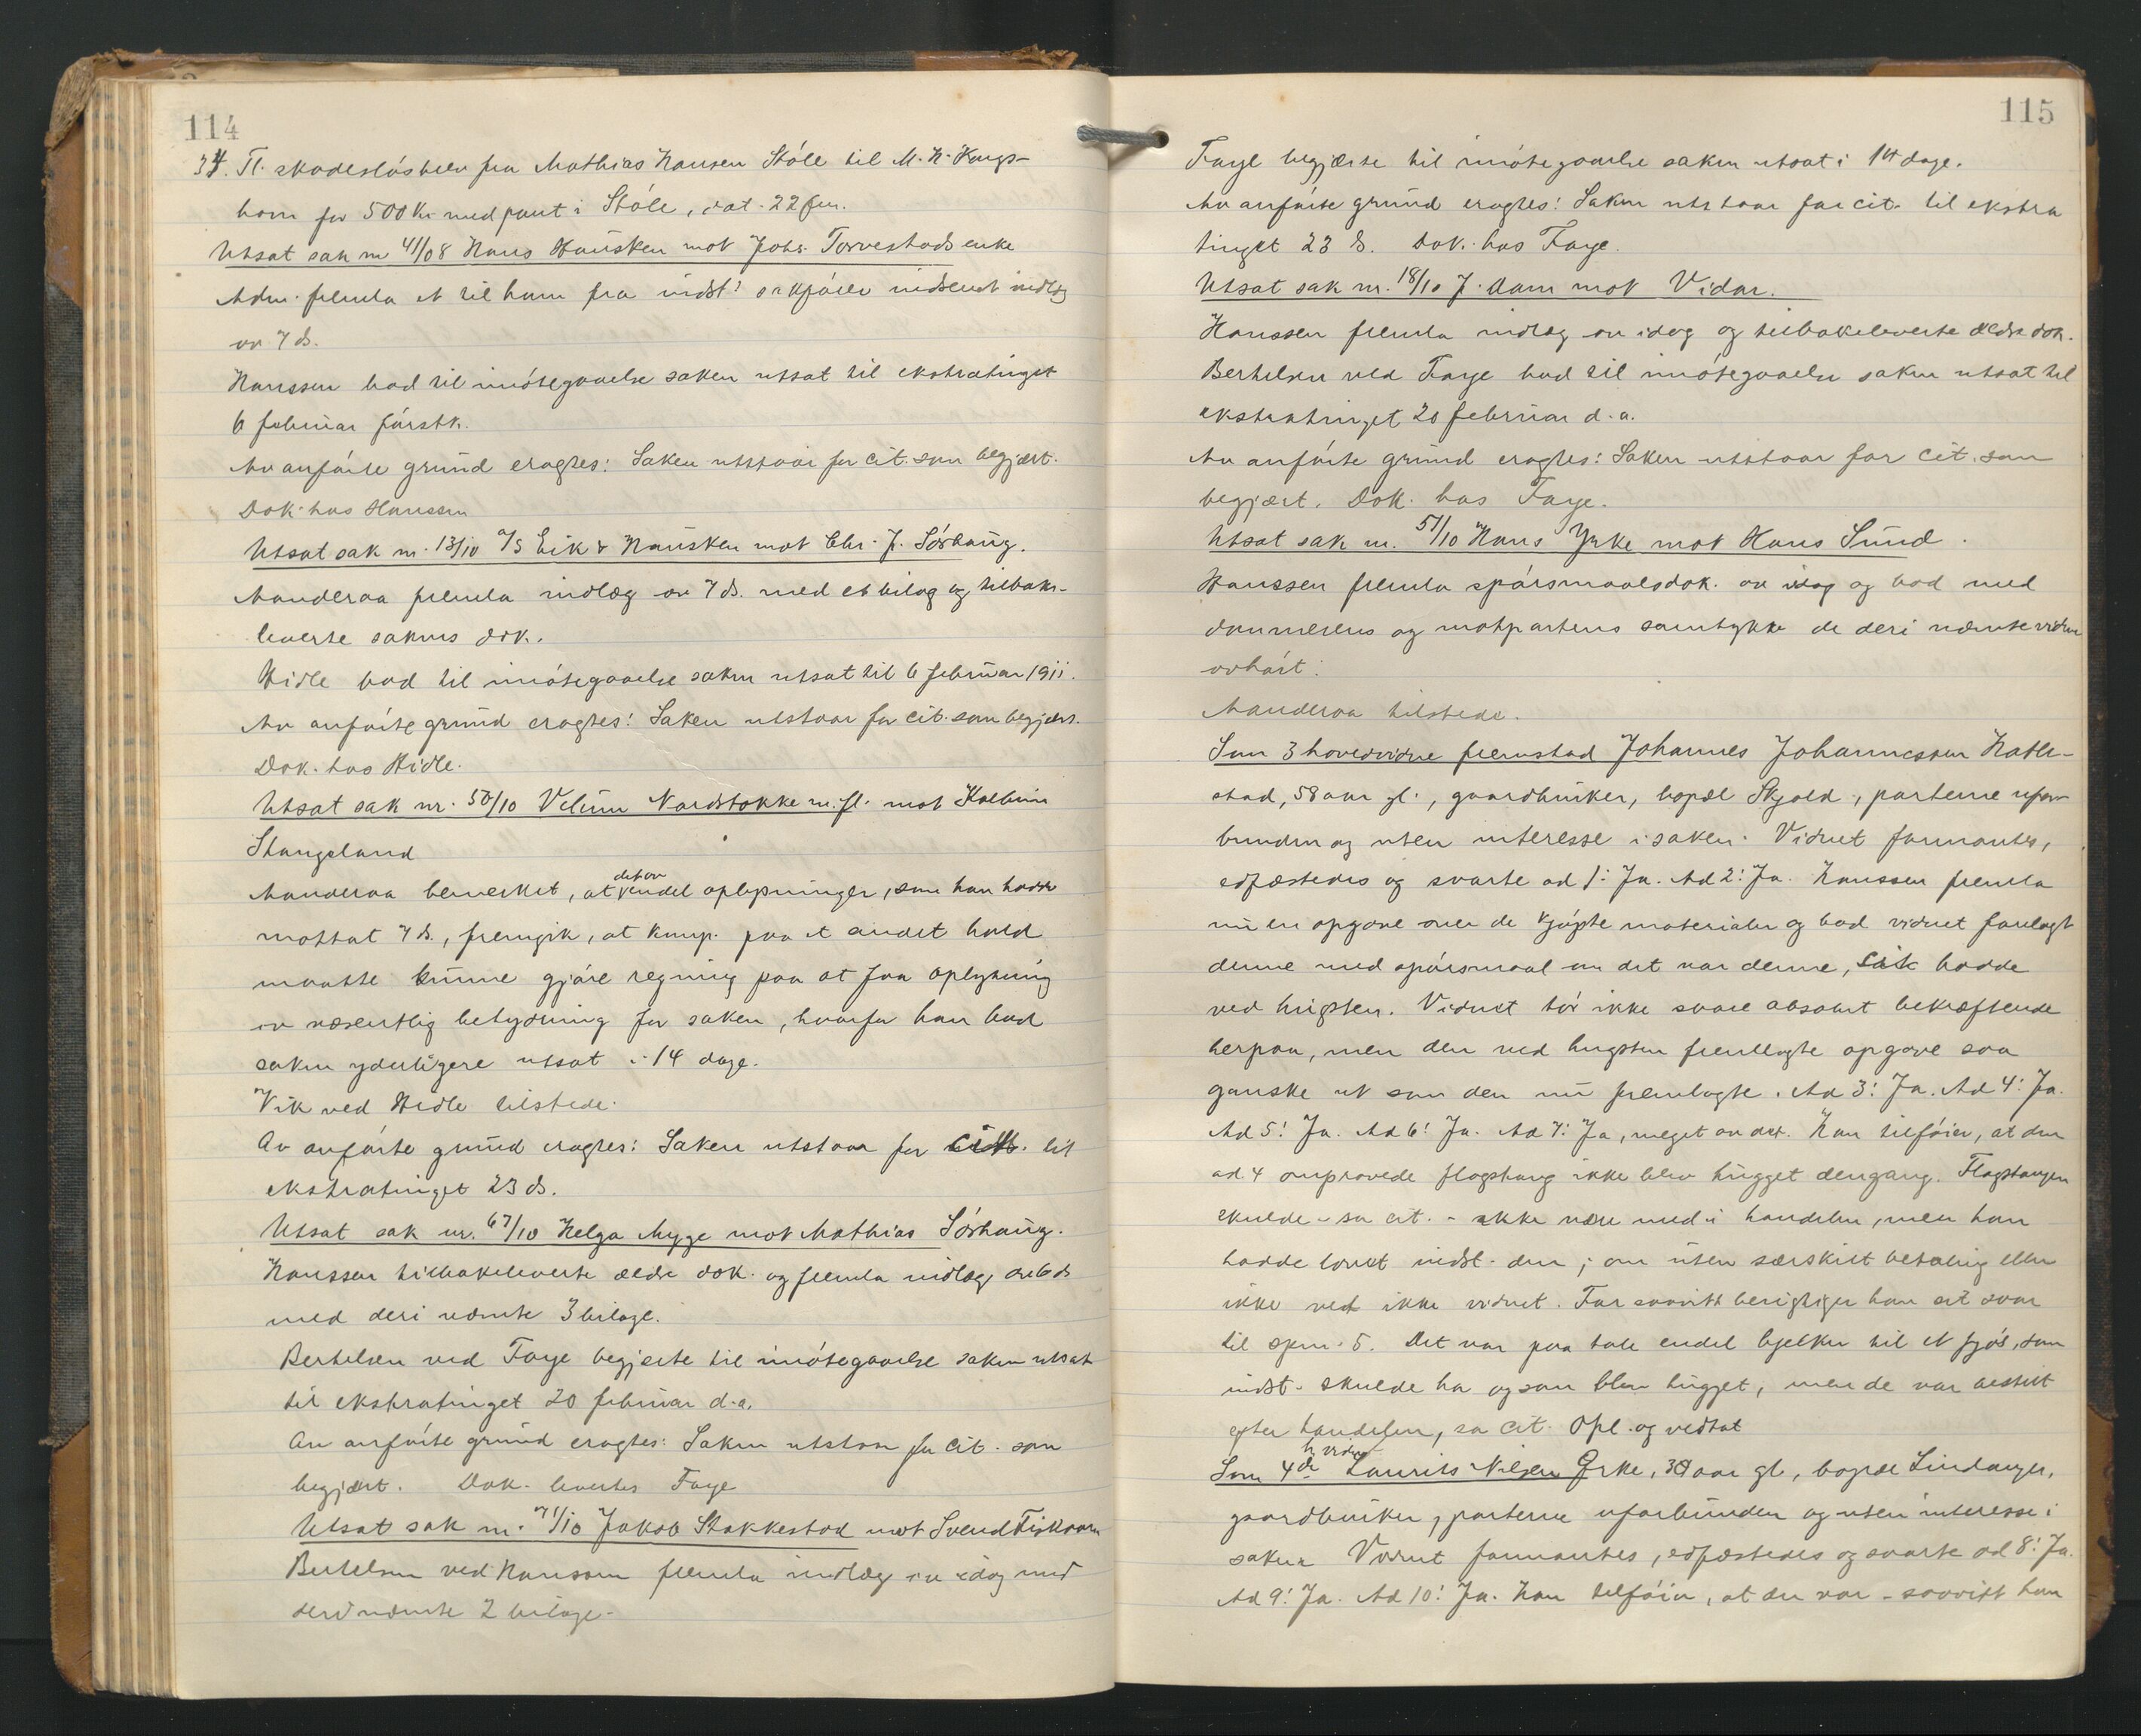 114
34. Tl. skadesløsbrev fra Mathias Hansen Stóle til M. N. Kongs-
horn for 500 Kr. med pant i Stóle, dat. 22 jan.
Utsat sak nr 41/08 Hans Hausken mot Johs. Torvestads enke
Adm. fremla et til ham fra indst! sakfører indsendt indlæg
av 7 ds.
Hanssen bad til imótegaaelse saken utsat til ekstratinget
6 februar førstk.
Av anførte grund eragtes: Saken utstaar for cit. som begjært.
Dok. hos Hanssen
Utsat sak nr. 13/10 A/S Eik & Hausken mot Chr. J. Sórhaug.
Aanderaa fremla indlæg av 7 ds. med et bilag og tilbake-
leverte sakens dok.
Hidle bad til imótegaaelse saken utsat til 6 februar 1911.
Av anførte grund eragtes: Saken utstaar for cit. som begjært.
Dok. hos Hidle.
Utsat sak nr. 50/10 Velum Nordstokke m. fl. mot Kolbein
Stangeland
Aanderaa bemerket, at det av endel oplysninger, som han hadde
mottat 7 ds., fremgik, at kmp. paa et andet hold
maatte kunne gjøre regning paa at faa oplysning
av væsentlig betydning for saken, hvorfor han bad
saken yderligere utsat i 14 dage.
Vik ved Hidle tilstede.
Av anførte grund eragtes: Saken utstaar for citt. til
ekstratinget 23 ds.
Utsat sak nr. 67/10 Helga Mygge mot Mathias Sórhaug.
Hanssen tilbakeleverte ældre dok. og fremla indlæg av 6 ds
med deri nævnte 3 bilage.
Bertelsen ved Faye begjærte til imótegaaelse saken utsat
til ekstratinget 20 februar d. a.
Av anførte grund eragtes: Saken utstaar for cit. som
begjært. Dok. levertes Faye
Utsat sak nr. 71/10 Jakob Stakkestad mot Svend Fiskaaen
Bertelsen ved Hanssen fremla indlæg av idag med
deri nævnte 2 bilage.
115
Faye begjærte til imótegaaelse saken utsat i 14 dage.
Av anførte grund eragtes: Saken utstaar for cit. til ekstra
tinget 23 ds. Dok. hos Faye.
Utsat sak nr. 18/10 J. Aam mot Vidar.
Hanssen fremla indlæg av idag og tilbakeleverte ældre dok.
Bertelsen ved Faye bad til imótegaaelse saken utsat til
ekstratinget 20 februar d. a.
Av anførte grund eragtes: Saken utstaar for cit. som
begjært. Dok. hos Faye.
Utsat sak nr. 51/10 Hans Yrke mot Hans Sund.
Hanssen fremla spórsmaalsdok. av idag og bad med
dommerens og motpartens samtykke de deri nævnte vidner
avhørt.
Aanderaa tilstede.
Som 3 hovedvidne fremstod Johannes Johannessen Hatle-
stad, 58 aar gl., gaardbruker, bopæl Skjold, parterne ufor-
bunden og uten interesse i saken. Vidnet formantes,
edfæstedes og svarte ad 1: Ja. Ad 2: Ja. Hanssen fremla
nu en opgave over de kjøpte materialer og bad vidnet forelagt
denne med spørsmaal om det var denne, cit. hadde
ved hugsten. Vidnet tør ikke svare absolut bekræftende
herpaa, men den ved hugsten fremlagte opgave saa
ganske ut som den nu fremlagte. Ad 3: Ja. Ad 4: Ja.
Ad 5: Ja. Ad 6: Ja. Ad 7: Ja, meget av det. Han tilføier, at den
ad 4 omprovede flagstang ikke blev hugget dengang. Flagstangen
skulde - sa cit. - ikke være med i handelen, men han
hadde lovet indst. den; om uten særskilt betaling eller
ikke ved ikke vidnet. Forsaavidt berigtiger han sit svar
til spm. 5. Det var paa tale endel bjelker til et fjøs, som
indst. skulde ha og som blev hugget, men de var bestilt
efter handelen, sa cit. Opl. og vedtat
Som 4de h. vidne Laurits Nilsen Yrke, 30 aar gl, bopæl Lindanger,
gaardbruker, parterne uforbunden og uten interesse i
saken. Vidnet formantes, edfæstedes og svarte ad 8: Ja.
Ad 9: Ja. Ad 10: Ja. Han tilføier, at der var - saavidt han